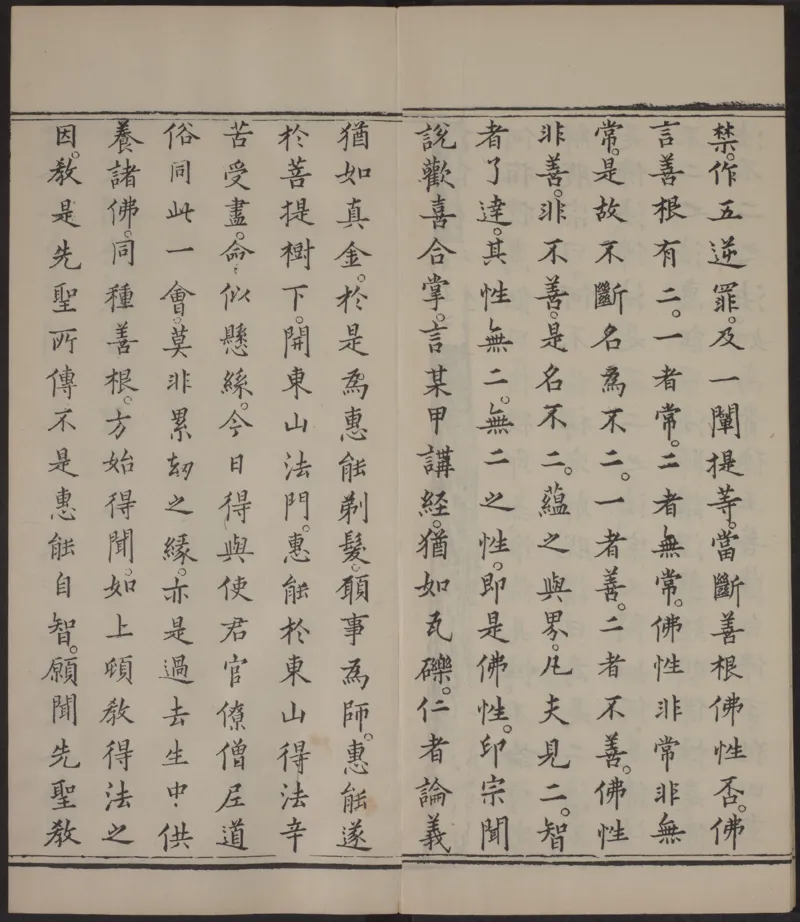 禁。作五逆罪。及一闡提等。當斷善根佛性否。佛
言善根有二。一者常。二者無常。佛性非常非無
常。是故不斷名為不二。一者善。二者不善。佛性
非善。非不善。是名不二。蘊之與界。凡夫見二。智
者了達。其性無二。無二之性。即是佛性。印宗聞
說歡喜合掌。言某甲講經。猶如瓦礫。仁者論義
猶如真金。於是為惠能剃髮。願事為師。惠能遂
於菩提樹下。開東山法門。惠能於東山得法辛
苦受盡。命似懸絲。今日得與使君官僚僧尼道
俗同此一會。莫非累劫之緣。亦是過去生中。供
養諸佛。同種善根。方始得聞。如上頓教得法之
因。教是先聖所傳不是惠能自智。願聞先聖教